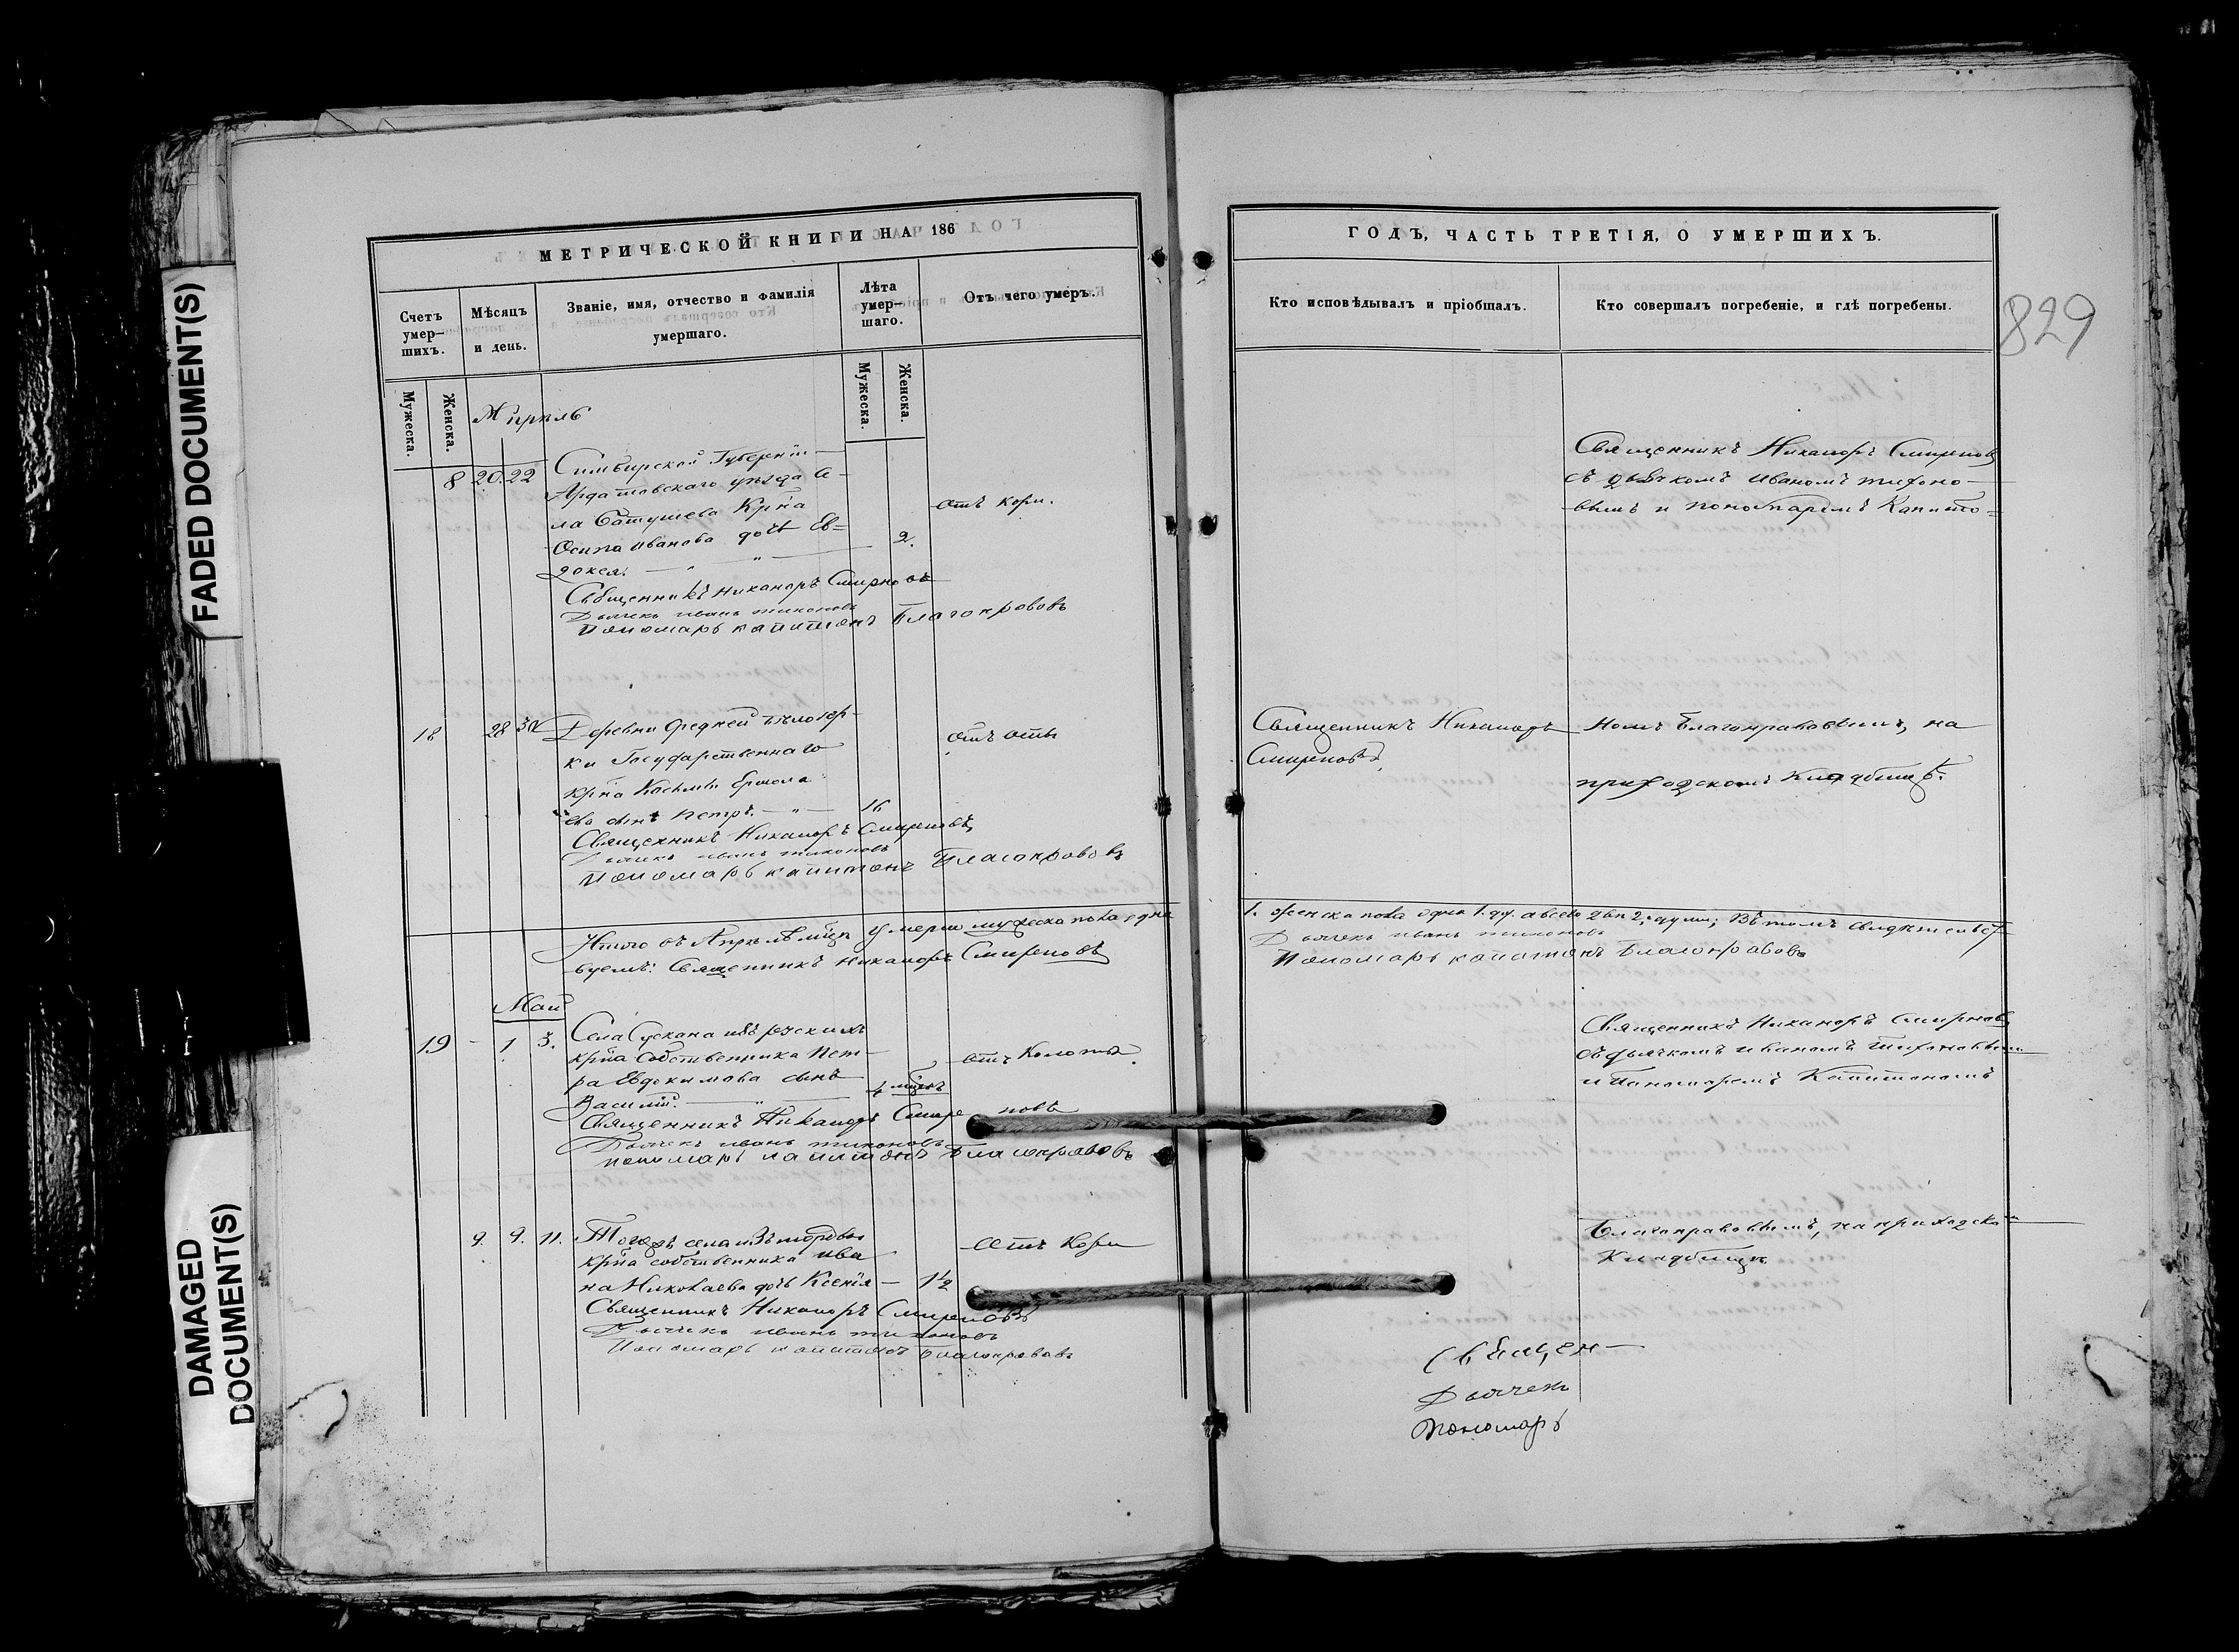 829
FADED DOCUMENT(S)
DAMAGED
DOCUMENT(S)
МЕТРИЧЕСКОЙ КНИГИ НА 186
Счетъ
умер-
шихъ.
Мѣсяцъ
и день.
Званіе, имя, отчество и фамилія
умершаго.
Лѣта
умер-
шаго.
Отъ чего умеръ.
Мужеска.
Женска.
Мужеска.
Женска.
Апрѣль
8 20. 22
Симбирской Губерніи
Ардатовскаго уѣзда Се-
ла Крна
Осипа Иванова дочь Ев-
докея. 2.
отъ кори.
Священникъ Никаноръ Смирновъ
Дьячекъ Иванъ Тихоновъ
Пономарь Капитонъ Благонравовъ
18 28 30
Деревни Средней
ки Государственнаго
крна Косьмы Ермола
ева сынъ Петръ. 16
отъ оспы
Священникъ Никаноръ Смирновъ,
Дьячекъ Иванъ Тихоновъ
Пономарь Капитонъ Благонравовъ
Итого въ Апрѣлѣ мцѣ умерло мужеска пола одна
вуемъ: Священникъ Никаноръ Смирновъ
Май
19 1 3.
Села
крна собственника Пет-
ра Евдокимова сынъ
Василій. 4 мцевъ
отъ
Священникъ Никаноръ Смирновъ
Дьячекъ Иванъ Тихоновъ
Пономарь Капитонъ Благонравовъ
9. 9. 11.
Тогожъ села изъ мордвы
крна собственника Ива
на Николаева дочь Ксенія 1½
отъ кори
Священникъ Никаноръ Смирновъ
Дьячекъ Иванъ Тихоновъ
Пономарь Капитонъ Благонравовъ
ГОДЪ, ЧАСТЬ ТРЕТІЯ, О УМЕРШИХЪ.
Кто исповѣдывалъ и пріобщалъ.
Кто совершалъ погребеніе, и гдѣ погребены.
Священникъ Никаноръ Смирновъ
съ дьячкомъ Иваномъ Тихоно-
вымъ и пономаремъ Капито-
Священникъ Никаноръ
Смирновъ
номъ Благонравовымъ, на
приходскомъ кладбищѣ.
1. женска пола одна 1. ду. а всего двѣ 2. души; въ томъ свидѣтельст
Дьячекъ Иванъ Тихоновъ
Пономарь Капитонъ Благонравовъ
Священникъ Никаноръ Смирновъ
съ дьячкомъ Иваномъ Тихоновымъ
и Пономаремъ Капитономъ
Благонравовымъ, на приходском
кладбищѣ
Священ
Дьячекъ
Пономарь